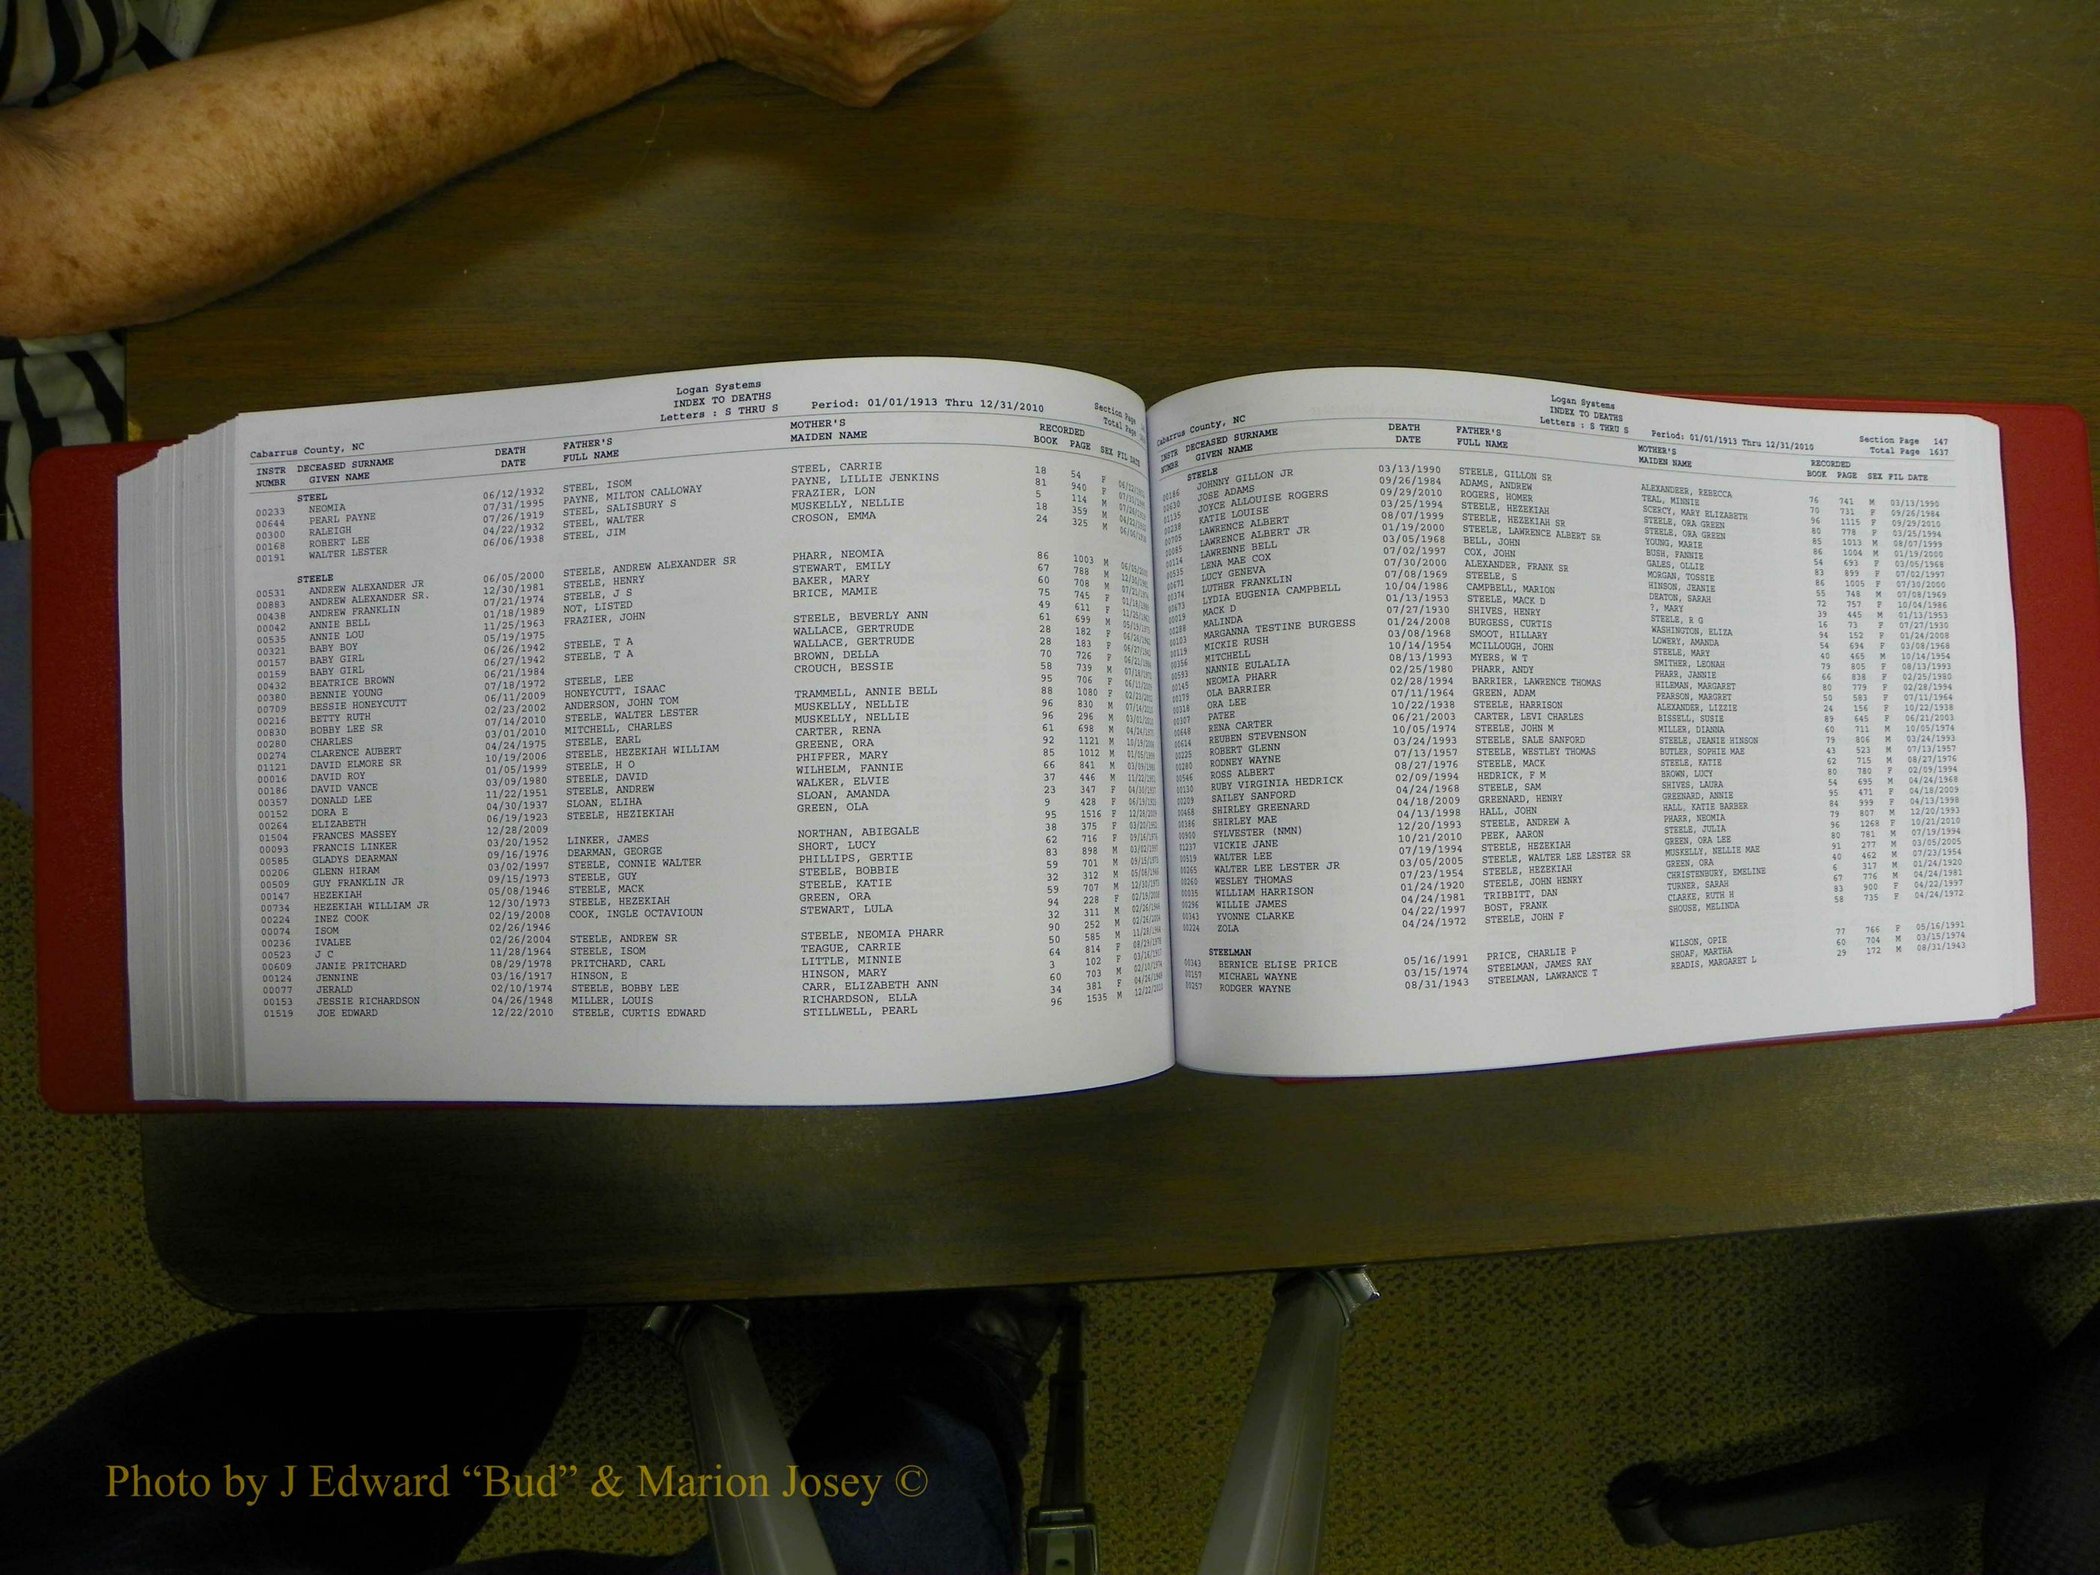 Logan Systems
INDEX TO DEATHS
Letters : S THRU S Period: 01/01/1913 Thru 12/31/2010 Section Page
Cabarrus County, NC Total Page
INSTR DECEASED SURNAME DEATH FATHER'S MOTHER'S RECORDED
NUMBR GIVEN NAME DATE FULL NAME MAIDEN NAME BOOK PAGE SEX FIL DATE
STEEL
00233 NEOMIA 06/12/1932 STEEL, ISOM STEEL, CARRIE 18 54 F
00644 PEARL PAYNE 07/31/1995 PAYNE, MILTON CALLOWAY PAYNE, LILLIE JENKINS 81 940 F
00300 RALEIGH 07/26/1919 STEEL, SALISBURY S FRAZIER, LON 5 114 M
00168 ROBERT LEE 04/22/1932 STEEL, WALTER MUSKELLY, NELLIE 18 359 M
00191 WALTER LESTER 06/06/1938 STEEL, JIM CROSON, EMMA 24 325 M
STEELE
00531 ANDREW ALEXANDER JR 06/05/2000 STEELE, ANDREW ALEXANDER SR PHARR, NEOMIA 86 1003 M 06/05/2000
00883 ANDREW ALEXANDER SR. 12/30/1981 STEELE, HENRY STEWART, EMILY 67 788 M 12/30/1981
00438 ANDREW FRANKLIN 07/21/1974 STEELE, J S BAKER, MARY 60 708 M 07/21/1974
00042 ANNIE BELL 01/18/1989 NOT, LISTED BRICE, MAMIE 75 745 F 01/18/1989
00535 ANNIE LOU 11/25/1963 FRAZIER, JOHN 49 611 F 11/25/1963
00321 BABY BOY 05/19/1975 STEELE, BEVERLY ANN 61 699 M 05/19/1975
00157 BABY GIRL 06/26/1942 STEELE, T A WALLACE, GERTRUDE 28 182 F 06/26/1942
00159 BABY GIRL 06/27/1942 STEELE, T A WALLACE, GERTRUDE 28 183 F 06/27/1942
00432 BEATRICE BROWN 06/21/1984 BROWN, DELLA 70 726 F 06/21/1984
00380 BENNIE YOUNG 07/18/1972 STEELE, LEE CROUCH, BESSIE 58 739 M 07/18/1972
00709 BESSIE HONEYCUTT 06/11/2009 HONEYCUTT, ISAAC 95 706 F 06/11/2009
00216 BETTY RUTH 02/23/2002 ANDERSON, JOHN TOM TRAMMELL, ANNIE BELL 88 1080 F 02/23/2002
00830 BOBBY LEE SR 07/14/2010 STEELE, WALTER LESTER MUSKELLY, NELLIE 96 830 M 07/14/2010
00280 CHARLES 03/01/2010 MITCHELL, CHARLES MUSKELLY, NELLIE 96 296 M 03/01/2010
00274 CLARENCE AUBERT 04/24/1975 STEELE, EARL CARTER, RENA 61 698 M 04/24/1975
01121 DAVID ELMORE SR 10/19/2006 STEELE, HEZEKIAH WILLIAM GREENE, ORA 92 1121 M 10/19/2006
00016 DAVID ROY 01/05/1999 STEELE, H O PHIFFER, MARY 85 1012 M 01/05/1999
00186 DAVID VANCE 03/09/1980 STEELE, DAVID WILHELM, FANNIE 66 841 M 03/09/1980
00357 DONALD LEE 11/22/1951 STEELE, ANDREW WALKER, ELVIE 37 446 M 11/22/1951
00152 DORA E 04/30/1937 SLOAN, ELIHA SLOAN, AMANDA 23 347 F 04/30/1937
00264 ELIZABETH 06/19/1923 STEELE, HEZIEKIAH GREEN, OLA 9 428 F 06/19/1923
01504 FRANCES MASSEY 12/28/2009 95 1516 F 12/28/2009
00093 FRANCIS LINKER 03/20/1952 LINKER, JAMES NORTHAN, ABIEGALE 38 375 F 03/20/1952
00585 GLADYS DEARMAN 09/16/1976 DEARMAN, GEORGE SHORT, LUCY 62 716 F 09/16/1976
00206 GLENN HIRAM 03/02/1997 STEELE, CONNIE WALTER PHILLIPS, GERTIE 83 898 M 03/02/1997
00509 GUY FRANKLIN JR 09/15/1973 STEELE, GUY STEELE, BOBBIE 59 701 M 09/15/1973
00147 HEZEKIAH 05/08/1946 STEELE, MACK STEELE, KATIE 32 312 M 05/08/1946
00734 HEZEKIAH WILLIAM JR 12/30/1973 STEELE, HEZEKIAH GREEN, ORA 59 707 M 12/30/1973
00224 INEZ COOK 02/19/2008 COOK, INGLE OCTAVIOUN STEWART, LULA 94 228 F 02/19/2008
00074 ISOM 02/26/1946 32 311 M 02/26/1946
00236 IVALEE 02/26/2004 STEELE, ANDREW SR STEELE, NEOMIA PHARR 90 252 M 02/26/2004
00523 J C 11/28/1964 STEELE, ISOM TEAGUE, CARRIE 50 585 M 11/28/1964
00609 JANIE PRITCHARD 08/29/1978 PRITCHARD, CARL LITTLE, MINNIE 64 814 F 08/29/1978
00124 JENNINE 03/16/1917 HINSON, E HINSON, MARY 3 102 F 03/16/1917
00077 JERALD 02/10/1974 STEELE, BOBBY LEE CARR, ELIZABETH ANN 60 703 M 02/10/1974
00153 JESSIE RICHARDSON 04/26/1948 MILLER, LOUIS RICHARDSON, ELLA 34 381 F 04/26/1948
01519 JOE EDWARD 12/22/2010 STEELE, CURTIS EDWARD STILLWELL, PEARL 96 1535 M 12/22/2010
Logan Systems
INDEX TO DEATHS
Letters : S THRU S Period: 01/01/1913 Thru 12/31/2010 Section Page 147
Cabarrus County, NC Total Page 1637
INSTR DECEASED SURNAME DEATH FATHER'S MOTHER'S RECORDED
NUMBR GIVEN NAME DATE FULL NAME MAIDEN NAME BOOK PAGE SEX FIL DATE
STEELE
00186 JOHNNY GILLON JR 03/13/1990 STEELE, GILLON SR ALEXANDEER, REBECCA 76 741 M 03/13/1990
00630 JOSE ADAMS 09/26/1984 ADAMS, ANDREW TEAL, MINNIE 70 731 F 09/26/1984
01135 JOYCE ALLOUISE ROGERS 09/29/2010 ROGERS, HOMER SCERCY, MARY ELIZABETH 96 1115 F 09/29/2010
00238 KATIE LOUISE 03/25/1994 STEELE, HEZEKIAH STEELE, ORA GREEN 80 778 F 03/25/1994
00705 LAWRENCE ALBERT 08/07/1999 STEELE, HEZEKIAH SR STEELE, ORA GREEN 85 1013 M 08/07/1999
00085 LAWRENCE ALBERT JR 01/19/2000 STEELE, LAWRENCE ALBERT SR YOUNG, MARIE 86 1004 M 01/19/2000
00114 LAWRENNE BELL 03/05/1968 BELL, JOHN BUSH, FANNIE 54 693 F 03/05/1968
00535 LENA MAE COX 07/02/1997 COX, JOHN GALES, OLLIE 83 899 F 07/02/1997
00671 LUCY GENEVA 07/30/2000 ALEXANDER, FRANK SR MORGAN, TOSSIE 86 1005 F 07/30/2000
00374 LUTHER FRANKLIN 07/08/1969 STEELE, S HINSON, JEANIE 55 748 M 07/08/1969
00673 LYDIA EUGENIA CAMPBELL 10/04/1986 CAMPBELL, MARION DEATON, SARAH 72 757 F 10/04/1986
00019 MACK D 01/13/1953 STEELE, MACK D ?, MARY 39 445 M 01/13/1953
00288 MALINDA 07/27/1930 SHIVES, HENRY STEELE, R G 16 73 F 07/27/1930
00103 MARGANNA TESTINE BURGESS 01/24/2008 BURGESS, CURTIS WASHINGTON, ELIZA 94 152 F 01/24/2008
00119 MICKIE RUSH 03/08/1968 SMOOT, HILLARY LOWERY, AMANDA 54 694 F 03/08/1968
00356 MITCHELL 10/14/1954 MCILLOUGH, JOHN STEELE, MARY 40 465 M 10/14/1954
00593 NANNIE EULALIA 08/13/1993 MYERS, W T SMITHER, LEONAH 79 805 F 08/13/1993
00145 NEOMIA PHARR 02/25/1980 PHARR, ANDY PHARR, JANNIE 66 838 F 02/25/1980
00179 OLA BARRIER 02/28/1994 BARRIER, LAWRENCE THOMAS HILEMAN, MARGARET 80 779 F 02/28/1994
00318 ORA LEE 07/11/1964 GREEN, ADAM PEARSON, MARGRET 50 583 F 07/11/1964
00307 PATEE 10/22/1938 STEELE, HARRISON ALEXANDER, LIZZIE 24 156 F 10/22/1938
00648 RENA CARTER 06/21/2003 CARTER, LEVI CHARLES BISSELL, SUSIE 89 645 F 06/21/2003
00614 REUBEN STEVENSON 10/05/1974 STEELE, JOHN M MILLER, DIANNA 60 711 M 10/05/1974
00225 ROBERT GLENN 03/24/1993 STEELE, SALE SANFORD STEELE, JEANIE HINSON 79 806 M 03/24/1993
00280 RODNEY WAYNE 07/13/1957 STEELE, WESTLEY THOMAS BUTLER, SOPHIE MAE 43 523 M 07/13/1957
00546 ROSS ALBERT 08/27/1976 STEELE, MACK STEELE, KATIE 62 715 M 08/27/1976
00130 RUBY VIRGINIA HEDRICK 02/09/1994 HEDRICK, F M BROWN, LUCY 80 780 F 02/09/1994
00209 SAILEY SANFORD 04/24/1968 STEELE, SAM SHIVES, LAURA 54 695 M 04/24/1968
00468 SHIRLEY GREENARD 04/18/2009 GREENARD, HENRY GREENARD, ANNIE 95 471 F 04/18/2009
00386 SHIRLEY MAE 04/13/1998 HALL, JOHN HALL, KATIE BARBER 84 999 F 04/13/1998
00900 SYLVESTER (NMN) 12/20/1993 STEELE, ANDREW A PHARR, NEOMIA 79 807 M 12/20/1993
01237 VICKIE JANE 10/21/2010 PEEK, AARON STEELE, JULIA 96 1268 F 10/21/2010
00519 WALTER LEE 07/19/1994 STEELE, HEZEKIAH GREEN, ORA LEE 80 781 M 07/19/1994
00265 WALTER LEE LESTER JR 03/05/2005 STEELE, WALTER LEE LESTER SR MUSKELLY, NELLIE MAE 91 277 M 03/05/2005
00260 WESLEY THOMAS 07/23/1954 STEELE, HEZEKIAH GREEN, ORA 40 462 M 07/23/1954
00035 WILLIAM HARRISON 01/24/1920 STEELE, JOHN HENRY CHRISTENBURY, EMELINE 6 317 M 01/24/1920
00296 WILLIE JAMES 04/24/1981 TRIBBITT, DAN TURNER, SARAH 67 776 M 04/24/1981
00343 YVONNE CLARKE 04/22/1997 BOST, FRANK CLARKE, RUTH H 83 900 F 04/22/1997
00224 ZOLA 04/24/1972 STEELE, JOHN F SHOUSE, MELINDA 58 735 F 04/24/1972
STEELMAN
00343 BERNICE ELISE PRICE 05/16/1991 PRICE, CHARLIE P WILSON, OPIE 77 766 F 05/16/1991
00157 MICHAEL WAYNE 03/15/1974 STEELMAN, JAMES RAY SHOAF, MARTHA 60 704 M 03/15/1974
00257 RODGER WAYNE 08/31/1943 STEELMAN, LAWRANCE T READIS, MARGARET L 29 172 M 08/31/1943
Photo by J Edward “Bud” & Marion Josey ©